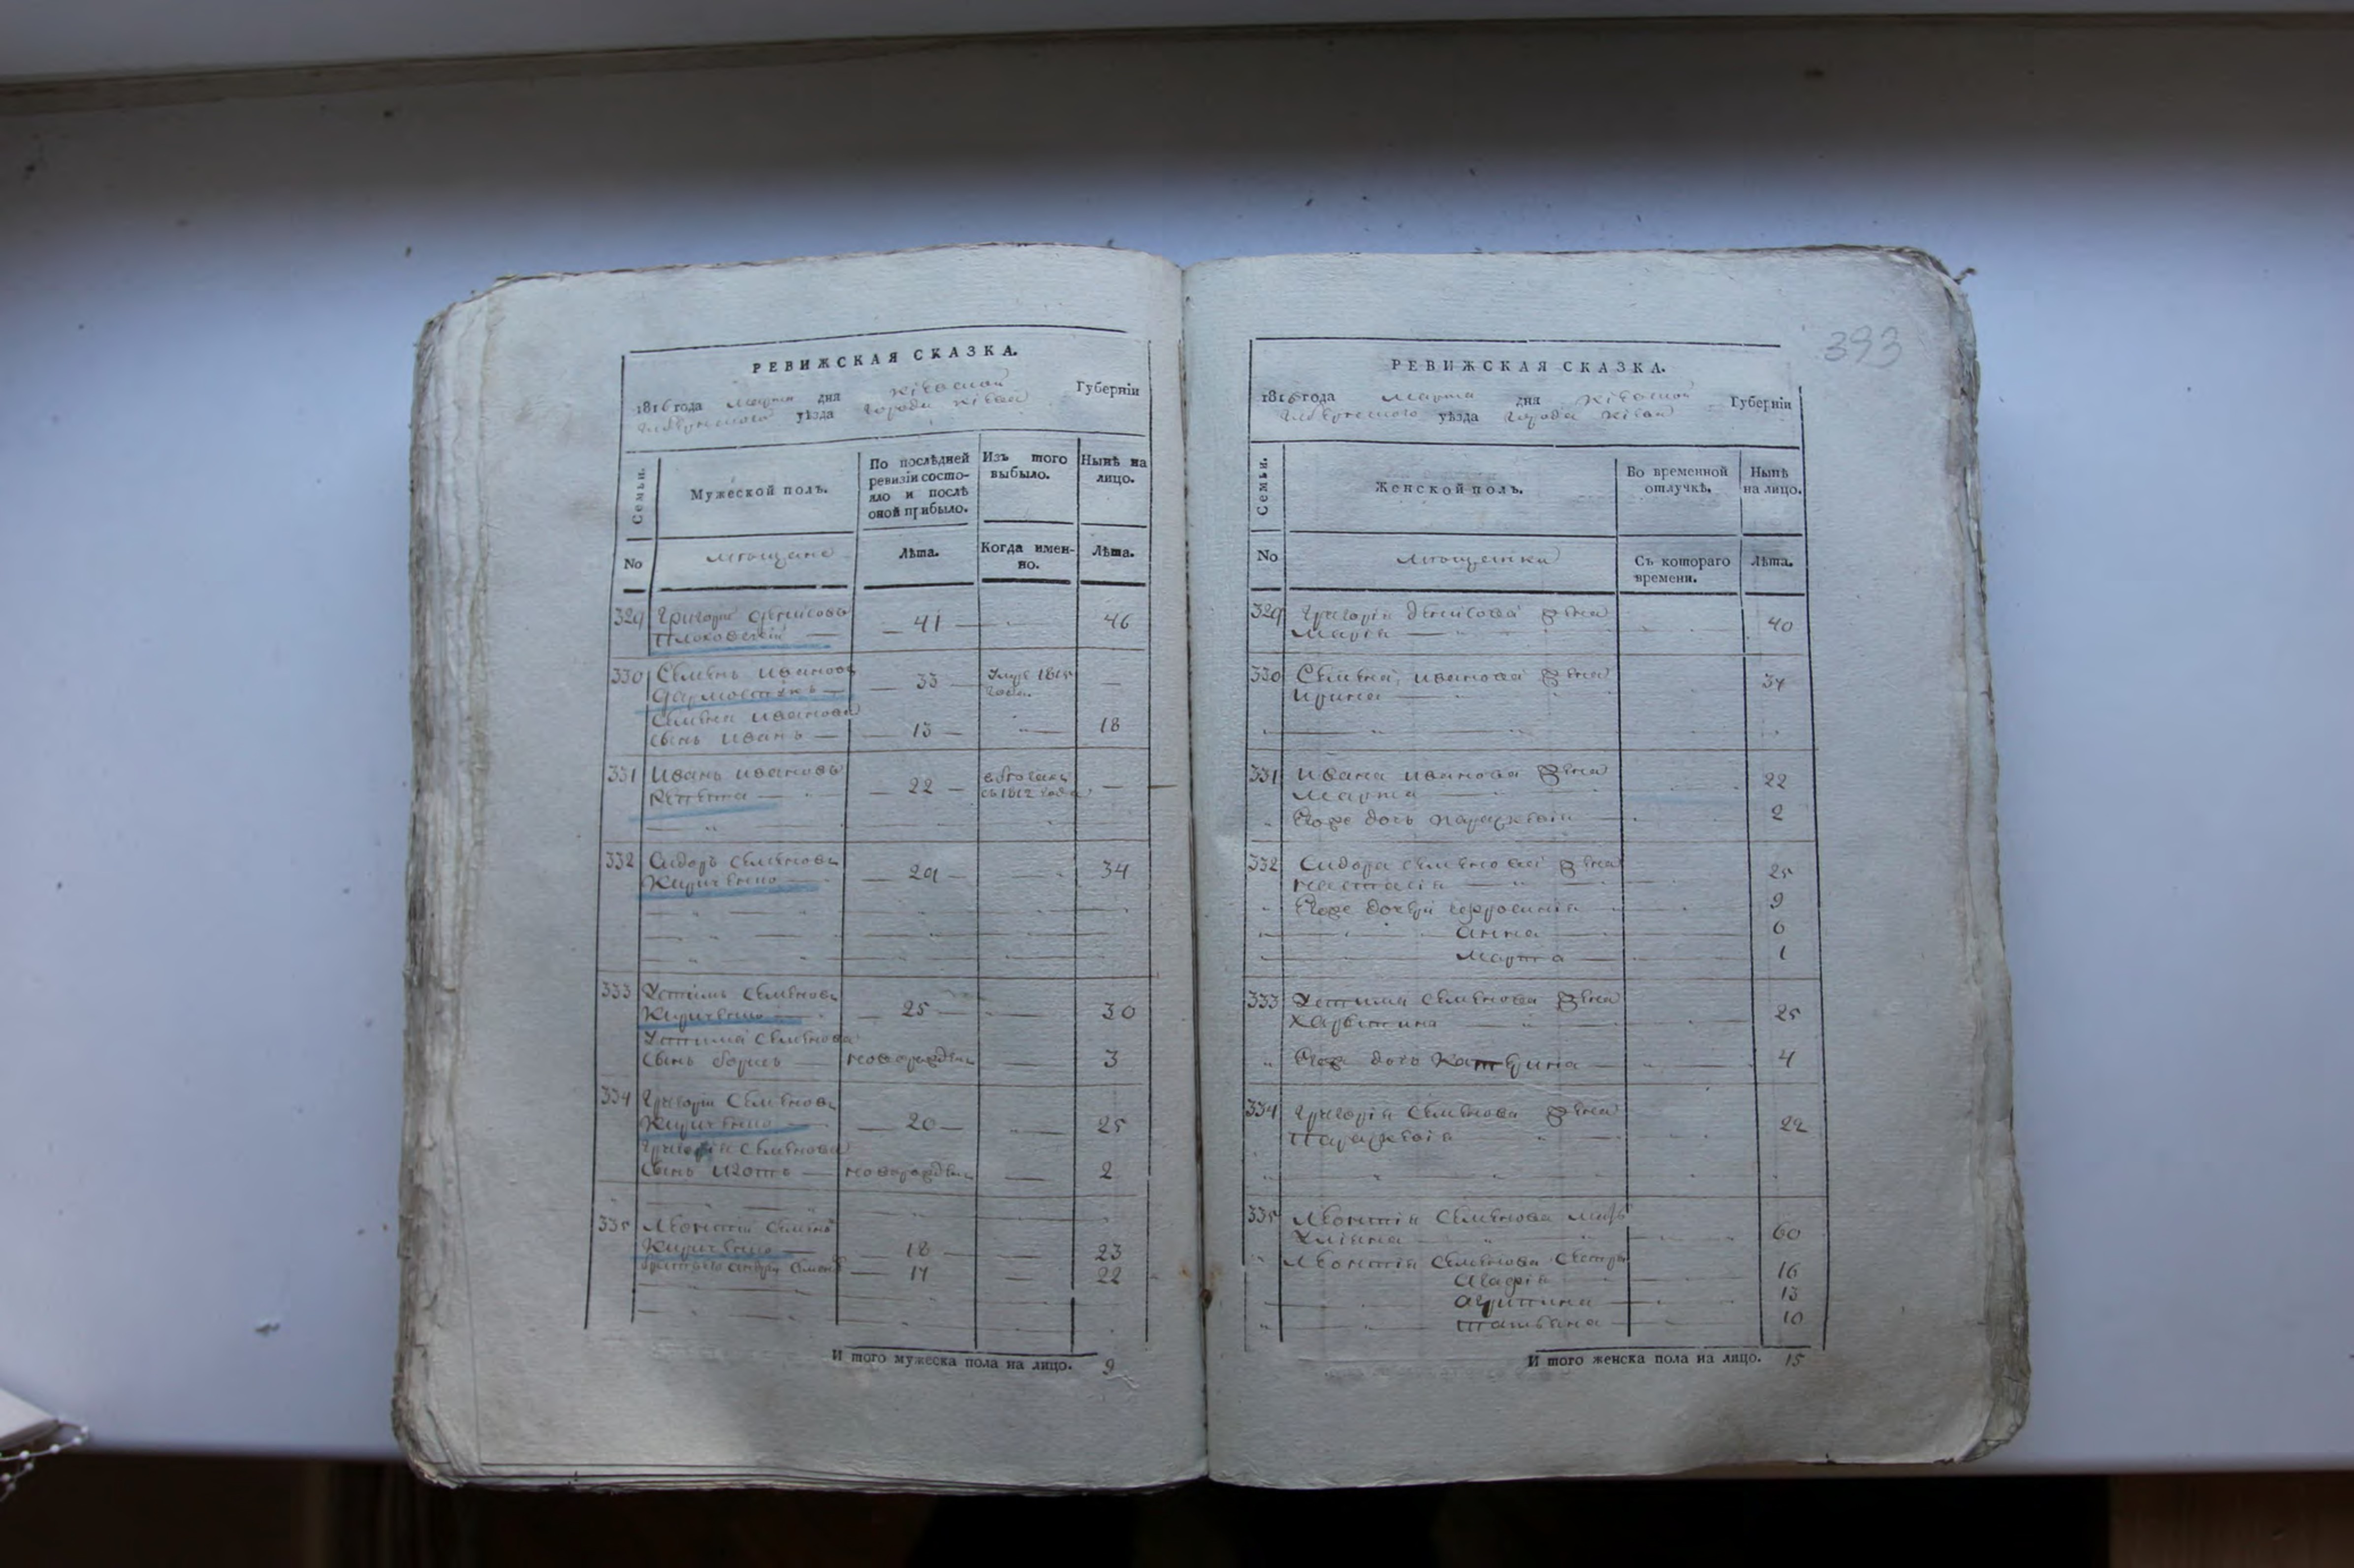 РЕВИЖСКАЯ СКАЗКА.
1816 года марта дня Кіевской Губерніи
уѣзда города Кіева
Семьи.
Мужеской полъ.
По послѣдней ревизіи состо-
яло и послѣ
оной прибыло.
Изъ того
выбыло.
Нынѣ на
лицо.
No
мѣщане
Лѣта.
Когда имен-
но.
Лѣта.
329 Григорій Денисовъ
— 41 — 46
330 Семенъ Ивановъ
— 33 — 1815 года —
Семена Иванова
сынъ Иванъ — 13 — 18
331 Иванъ Ивановъ
— 22 — съ 1812 года —
332 Сидоръ Семеновъ
Кириченко — 29 — 34
333 Устимъ Семеновъ
Кириченко — 25 — 30
Устима Семенова
сынъ Борисъ — новорожден — 3
334 Григорій Семеновъ
Кириченко — 20 — 25
Григорія Семенова
сынъ Изотъ — новорожден — 2
335 Леонтій Семенов
Кириченко — 18 — 23
Андрей Семенов — 17 — 22
И того мужеска пола на лицо. 9
393
РЕВИЖСКАЯ СКАЗКА.
1816 года марта дня Кіевской Губерніи
уѣзда города Кіева
Семьи.
Женской полъ.
Во временной
отлучкѣ.
Нынѣ
на лицо.
No
мѣщанки
Съ котораго
времени.
Лѣта.
329 Григорія Денисова жена
Марія — 40
330 Семена Иванова жена
Ирина — 34
331 Ивана Иванова жена
Марта — 22
Его же дочь Параскевія — 2
332 Сидора Семенова жена
Настасія — 25
Его же дочери Ефросинія — 9
Анна — 6
Марта — 1
333 Устима Семенова жена
Харитина — 25
Его же дочь Катерина — 4
334 Григорія Семенова жена
Параскевія — 22
335 Леонтія Семенова мать
Уліяна — 60
Леонтія Семенова сестры
Агафія — 16
Агрипина — 13
Татьяна — 10
И того женска пола на лицо. 15